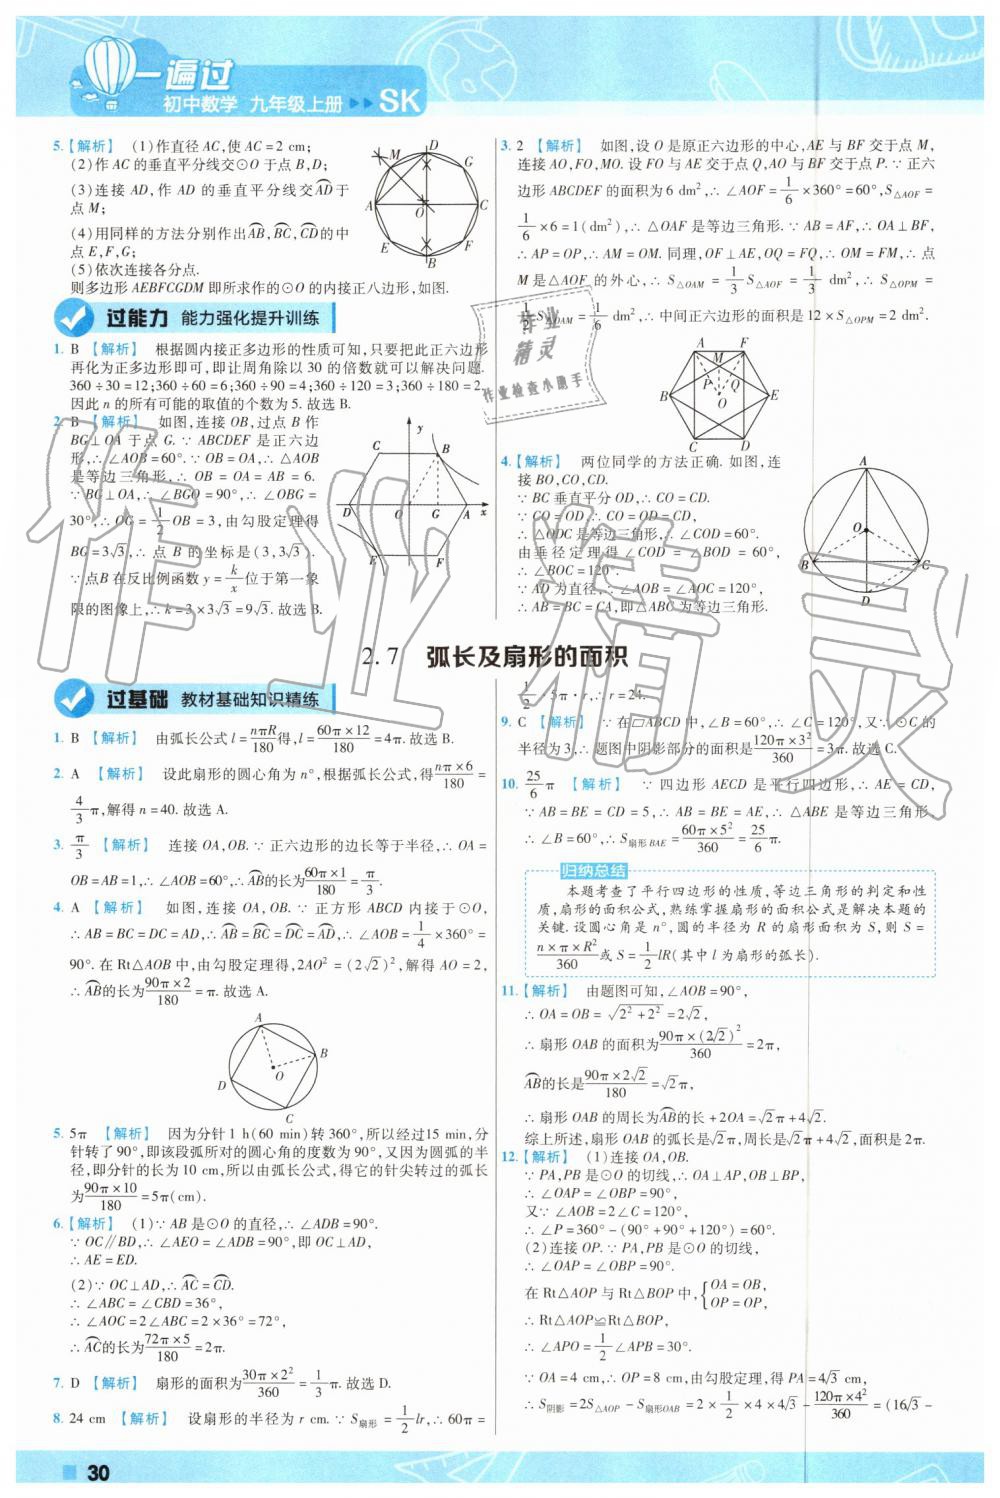 一遍过
初中数学 九年级上册 ▶▶ SK
5.【解析】 (1)作直径AC,使AC=2 cm;
(2)作AC的垂直平分线交⊙O于点B,D;
(3)连接AD,作AD的垂直平分线交AD于
点M;
(4)用同样的方法分别作出AB,BC,CD的中
点E,F,G;
(5)依次连接各分点.
则多边形AEBFCGDM即所求作的⊙O的内接正八边形,如图.
过能力 能力强化提升训练
1. B 【解析】 根据圆内接正多边形的性质可知,只要把此正六边形
再化为正多边形即可,即让周角除以30的倍数就可以解决问题.
360÷30=12;360÷60=6;360÷90=4;360÷120=3;360÷180=2.
因此n的所有可能的取值的个数为5.故选B.
2. B 【解析】 如图,连接OB,过点B作
BG⊥OA于点G.∵ABCDEF是正六边
形,∴∠AOB=60°.∵OB=OA,∴△AOB
是等边三角形,∴OB=OA=AB=6.
∵BG⊥OA,∴∠BGO=90°,∴∠OBG=
30°,∴OG=1/2OB=3,由勾股定理得
BG=3√3,∴点B的坐标是(3,3√3).
∵点B在反比例函数y=k/x位于第一象
限的图像上,∴k=3×3√3=9√3.故选B.
3. 2 【解析】 如图,设O是原正六边形的中心,AE与BF交于点M,
连接AO,FO,MO.设FO与AE交于点Q,AO与BF交于点P.∵正六
边形ABCDEF的面积为6 dm²,∴∠AOF=1/6×360°=60°,S△AOF=
1/6×6=1(dm²),∴△OAF是等边三角形.∵AB=AF,∴OA⊥BF,
∴AP=OP,∴AM=OM.同理,OF⊥AE,OQ=FQ,∴OM=FM,∴点
M是△AOF的外心,∴S△OAM=1/3S△AOF=1/3 dm²,∴S△OPM=
1/2S△OAM=1/6 dm²,∴中间正六边形的面积是12×S△OPM=2 dm².
4.【解析】 两位同学的方法正确.如图,连
接BO,CO,CD.
∵BC垂直平分OD,∴CO=CD.
∵CO=OD,∴CO=OD=CD,
∴△ODC是等边三角形,∴∠COD=60°.
由垂径定理得∠COD=∠BOD=60°,
∴∠BOC=120°.
∵AD为直径,∴∠AOB=∠AOC=120°,
∴AB=BC=CA,即△ABC为等边三角形.
2.7 弧长及扇形的面积
过基础 教材基础知识精练
1. B 【解析】 由弧长公式l=nπR/180得,l=60π×12/180=4π.故选B.
2. A 【解析】 设此扇形的圆心角为n°,根据弧长公式,得nπ×6/180=
4/3π,解得n=40.故选A.
3. π/3 【解析】 连接OA,OB.∵正六边形的边长等于半径,∴OA=
OB=AB=1,∴∠AOB=60°,∴AB的长为60π×1/180=π/3.
4. A 【解析】 如图,连接OA,OB.∵正方形ABCD内接于⊙O,
∴AB=BC=DC=AD,∴AB=BC=DC=AD,∴∠AOB=1/4×360°=
90°.在Rt△AOB中,由勾股定理得,2AO²=(2√2)²,解得AO=2,
∴AB的长为90π×2/180=π.故选A.
5. 5π 【解析】 因为分针1 h(60 min)转360°,所以经过15 min,分
针转了90°,即该段弧所对的圆心角的度数为90°,又因为圆弧的半
径,即分针的长为10 cm,所以由弧长公式,得它的针尖转过的弧长
为90π×10/180=5π(cm).
6.【解析】 (1)∵AB是⊙O的直径,∴∠ADB=90°.
∵OC∥BD,∴∠AEO=∠ADB=90°,即OC⊥AD,
∴AE=ED.
(2)∵OC⊥AD,∴AC=CD.
∴∠ABC=∠CBD=36°,
∴∠AOC=2∠ABC=2×36°=72°,
∴AC的长为72π×5/180=2π.
7. D 【解析】 扇形的面积为30π×2²/360=1/3π.故选D.
8. 24 cm 【解析】 设扇形的半径为r cm.∵S扇形=1/2lr,∴60π=
1/2·5π·r,∴r=24.
9. C 【解析】 ∵在▱ABCD中,∠B=60°,∴∠C=120°,又∵⊙C的
半径为3,∴题图中阴影部分的面积是120π×3²/360=3π.故选C.
10. 25/6π 【解析】 ∵四边形AECD是平行四边形,∴AE=CD,
∵AB=BE=CD=5,∴AB=BE=AE,∴△ABE是等边三角形,
∴∠B=60°,∴S扇形BAE=60π×5²/360=25/6π.
归纳总结
本题考查了平行四边形的性质,等边三角形的判定和性
质,扇形的面积公式,熟练掌握扇形的面积公式是解决本题的
关键.设圆心角是n°,圆的半径为R的扇形面积为S,则S=
n×π×R²/360或S=1/2lR(其中l为扇形的弧长).
11.【解析】 由题图可知,∠AOB=90°,
∴OA=OB=√(2²+2²)=2√2,
∴扇形OAB的面积为90π×(2√2)²/360=2π,
AB的长是90π×2√2/180=√2π,
∴扇形OAB的周长为AB的长+2OA=√2π+4√2.
综上所述,扇形OAB的弧长是√2π,周长是√2π+4√2,面积是2π.
12.【解析】 (1)连接OA,OB.
∵PA,PB是⊙O的切线,∴OA⊥AP,OB⊥BP,
∴∠OAP=∠OBP=90°,
又∵∠AOB=2∠C=120°,
∴∠P=360°-(90°+90°+120°)=60°.
(2)连接OP.∵PA,PB是⊙O的切线,
∴∠OAP=∠OBP=90°.
在Rt△AOP与Rt△BOP中,{OA=OB,
OP=OP,
∴Rt△AOP≌Rt△BOP,
∴∠APO=1/2∠APB=30°.
∵OA=4 cm,∴OP=8 cm,由勾股定理,得PA=4√3 cm,
∴S阴影=2S△AOP-S扇形OAB=2×1/2×4×4√3-120π×4²/360=(16√3-
30
作业精灵
作业
精灵
作业检查小助手